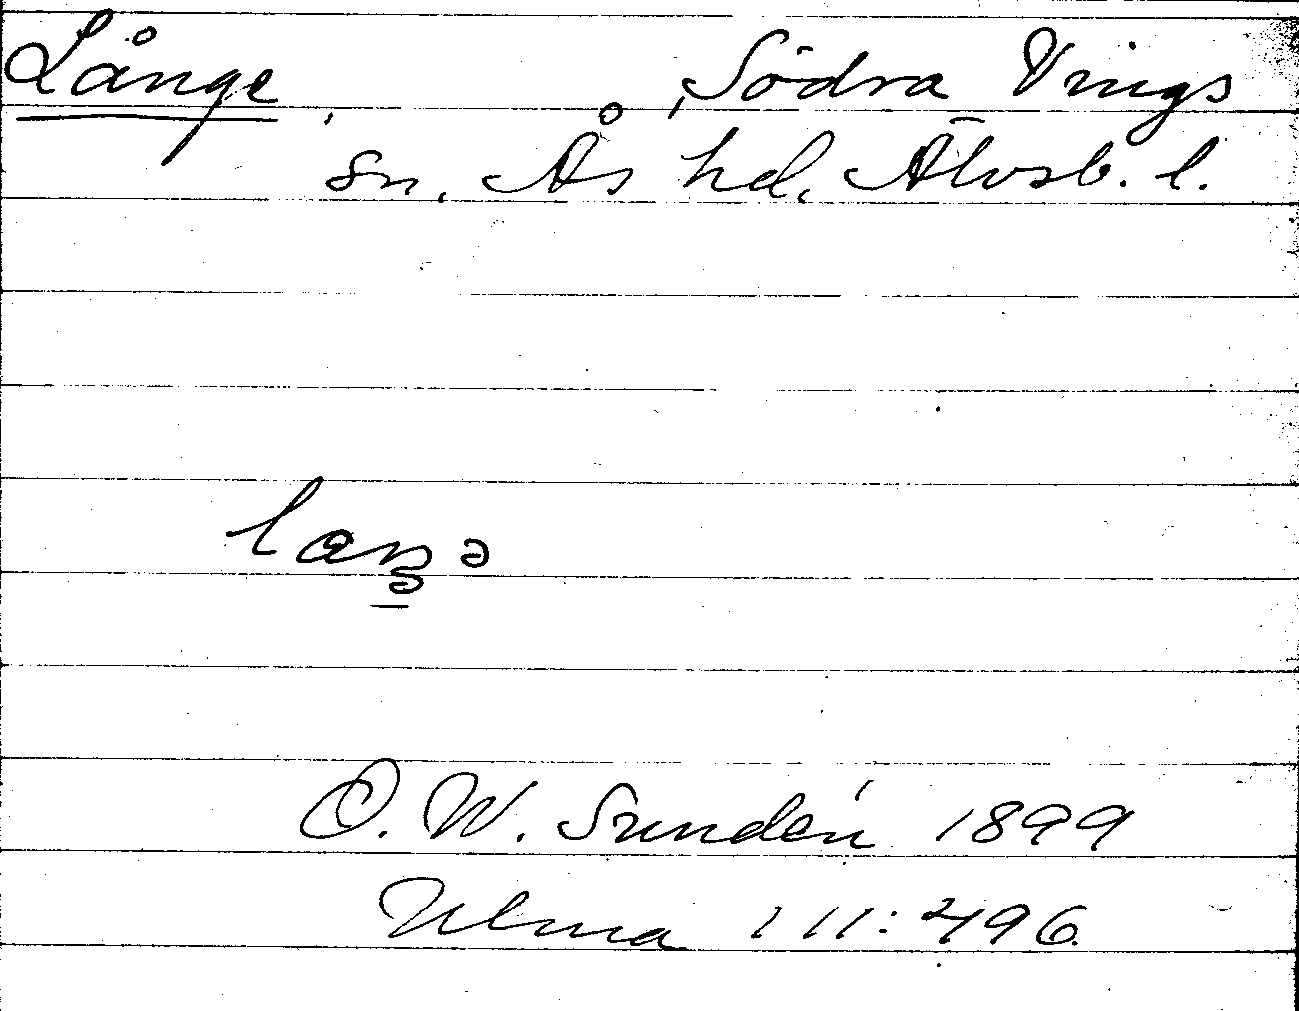 Långe, Södra Vings
sn. Ås hd. Älvsb. l.
O. W. Sundén 1899
Ulma 111:496